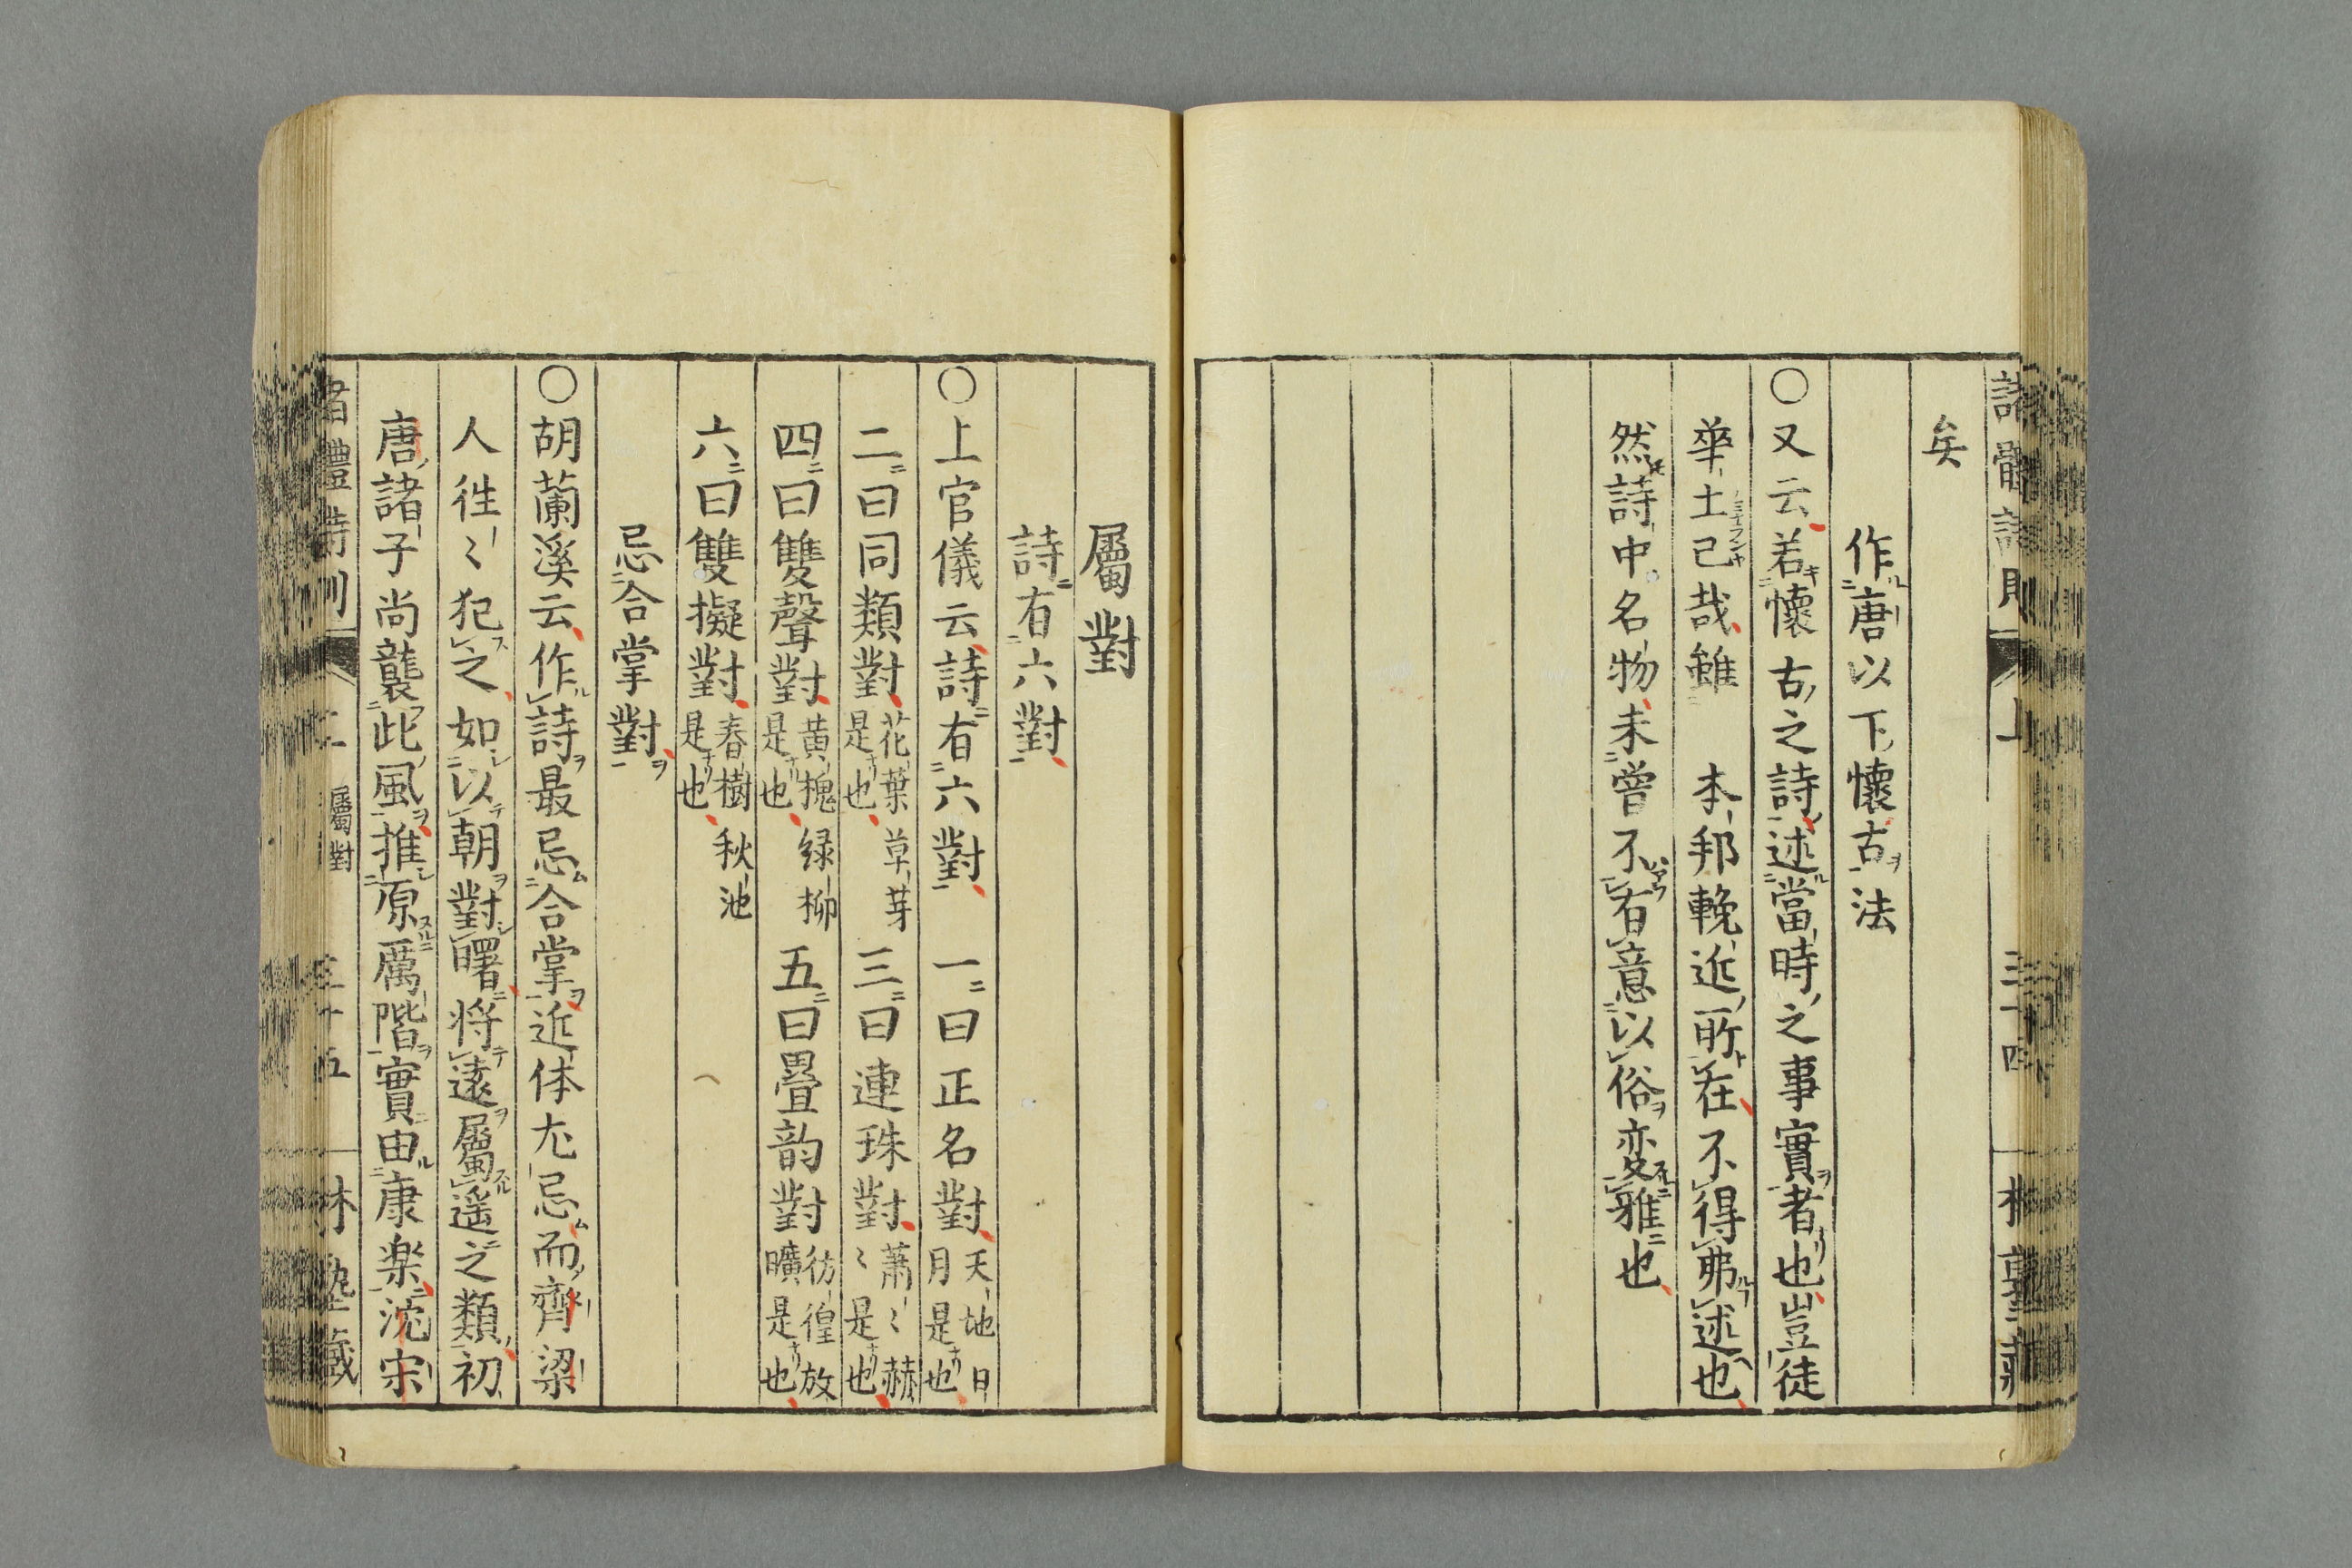 矣
作唐以下懷古法
〇又云若懷古之詩述當時之事實者也豈徒
華土已哉雖　本邦輓近所在不得弗述也
然詩中名物未嘗不有意以俗変雅也
屬對
詩有六對
〇上官儀云詩有六對　一曰正名對天地日月是也
二曰同類對花葉草芽是也　三曰連珠對蕭〻赫〻是也
四曰雙聲對黄槐緑柳是也　五曰疊韵對彷徨放曠是也
六曰雙擬對春樹秋池是也
忌合掌對
〇胡蘭溪云作詩最忌合掌近体尤忌而齊梁
人徃〻犯之如以朝對曙将遠屬遥之類初
唐諸子尚襲此風推原厲階實由康楽沈宋
屬對
三十五